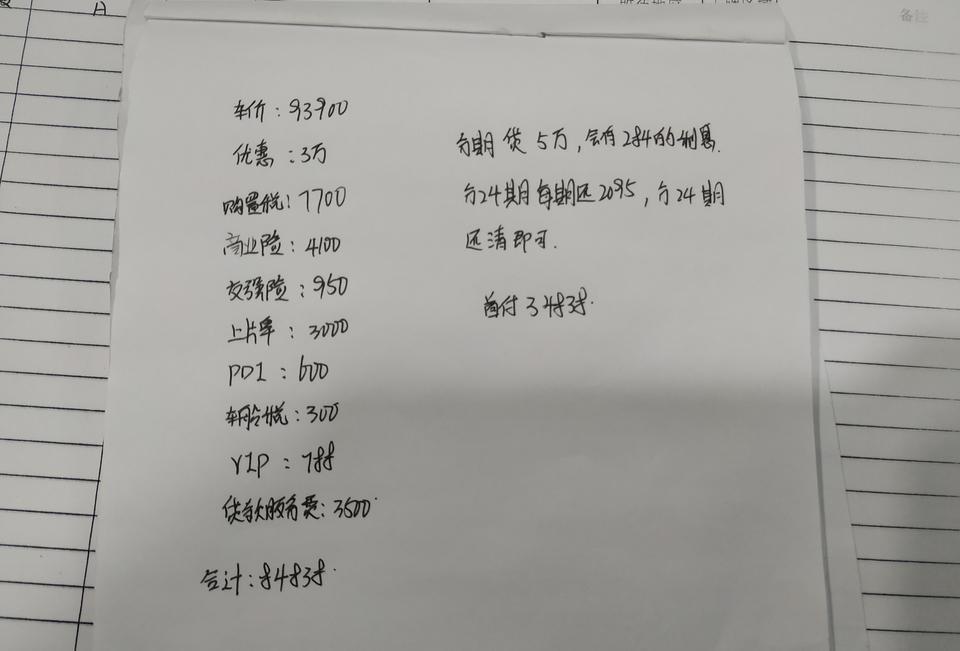 备注
车价：93900
优惠：3万
购置税：7700
商业险：4100
交强险：950
上片率：3000
PDI：600
车船税：300
VIP：788
贷款服务费：3500
合计：84838
分期贷5万，会有284的利息.
分24期每期还2095，分24期
还清即可.
首付34838.